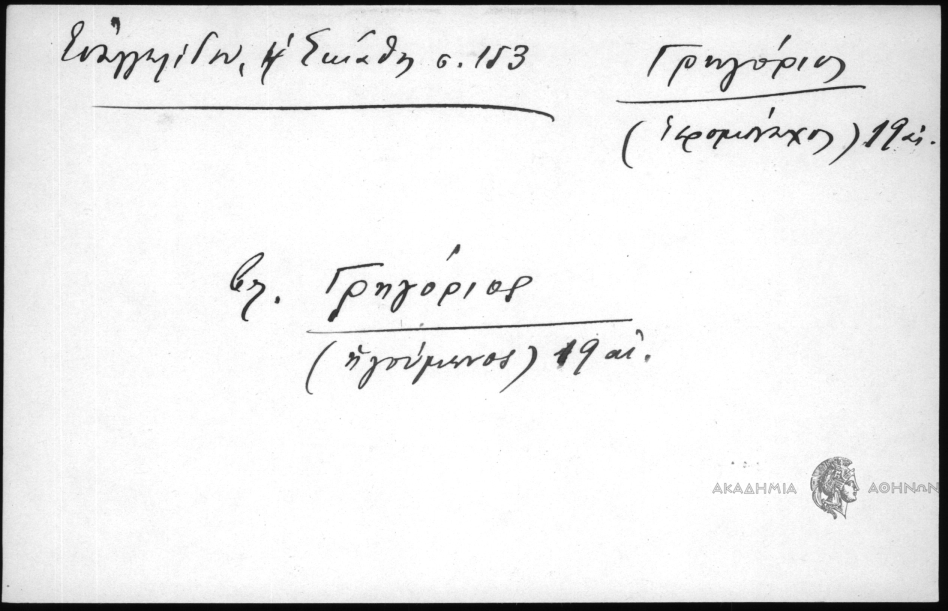 Εὐαγγελίδου, ἡ Σκίαθος σ. 153
Γρηγόριος
(ἱερομόναχος) 19 αἰ.
βλ. Γρηγόριος
(ἡγούμενος) 19 αἰ.
ΑΚΑΔΗΜΙΑ ΑΘΗΝΩΝ